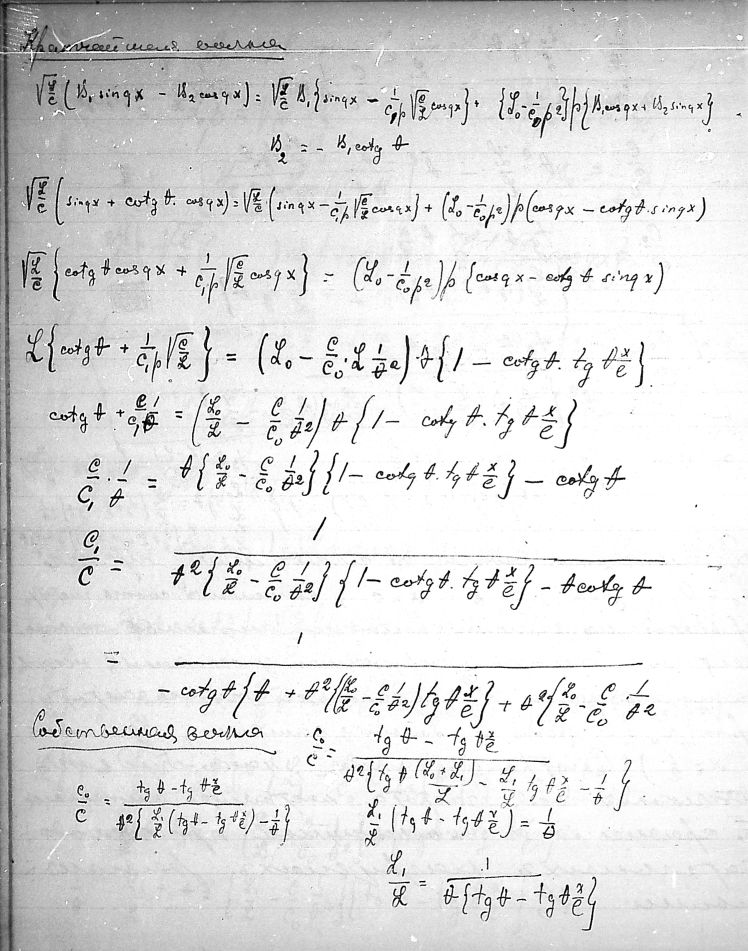 Кратчайшая волна
√(ℒ/C) (B₁ sin qx − B₂ cos qx) = √(ℒ/C) B₁ {sin qx − 1/(C₁p) √(C/ℒ) cos qx} + {ℒ₀ − 1/(C₀p²)} p {B₁ cos qx + B₂ sin qx}
B₂ = − B₁ cotg θ
√(ℒ/C) (sin qx + cotg θ. cos qx) = √(ℒ/C) (sin qx − 1/(C₁p) √(C/ℒ) cos qx} + (ℒ₀ − 1/(C₀p²)) p (cos qx − cotg θ. sin qx)
√(ℒ/C) {cotg θ cos qx + 1/(C₁p) √(C/ℒ) cos qx} = (ℒ₀ − 1/(C₀p²)) p {cos qx − cotg θ sin qx)
ℒ {cotg θ + 1/(C₁p) √(C/ℒ)} = (ℒ₀ − C/C₀ · ℒ 1/θ²) · θ {1 − cotg θ. tg θ x/e}
cotg θ + C/C₁ 1/θ = (ℒ₀/ℒ − C/C₀ 1/θ²) θ {1 − cotg θ. tg θ x/e}
C/C₁ · 1/θ = θ {ℒ₀/ℒ − C/C₀ 1/θ²} {1 − cotg θ. tg θ x/e} − cotg θ
C₁/C = 1 / θ² {ℒ₀/ℒ − C/C₀ 1/θ²} {1 − cotg θ. tg θ x/e} − θ cotg θ
= 1 / − cotg θ {θ + θ² (ℒ₀/ℒ − C/C₀ 1/θ²) tg θ x/e} + θ² {ℒ₀/ℒ − C/C₀ · 1/θ²
Собственная волна
C₀/C = tg θ − tg θ x/e / θ² {tg θ (ℒ₀ + ℒ₁)/ℒ − ℒ₁/ℒ tg θ x/e − 1/θ}
C₀/C = tg θ − tg θ x/e / θ² {ℒ₁/ℒ (tg θ − tg θ x/e) − 1/θ}
ℒ₁/ℒ (tg θ − tg θ x/e) = 1/θ
ℒ₁/ℒ = 1 / θ {tg θ − tg θ x/e}